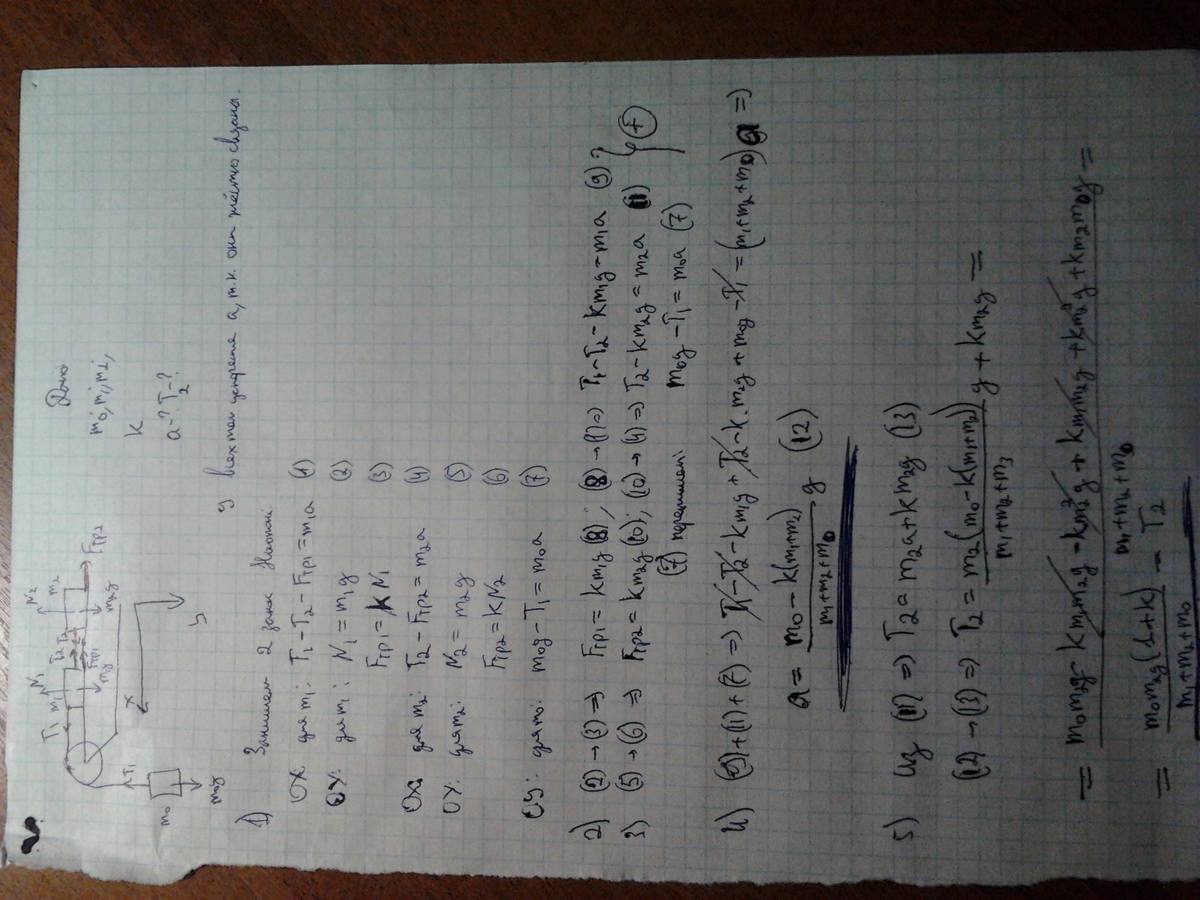 Дано
m₀, m₁, m₂,
k
a-? T₂-?
T₁ m₁ N₁ T₂ T₂ N₂ m₂
Fтр1 Fтр2
m₁g m₂g
T₁
m₀
m₀g
x
y
У всех тел ускорение a, т.к. они жёстко связаны.
1) Запишем 2 закон Ньютона:
OX для m₁: T₁ - T₂ - Fтр1 = m₁a (1)
OY: для m₁: N₁ = m₁g (2)
Fтр1 = kN₁ (3)
OX: для m₂: T₂ - Fтр2 = m₂a (4)
OY: для m₂: N₂ = m₂g (5)
Fтр2 = kN₂ (6)
OY: для m₀: m₀g - T₁ = m₀a (7)
2) (2)→(3) => Fтр1 = km₁g (8); (8)→(1) => T₁ - T₂ - km₁g = m₁a (9)
3) (5)→(6) => Fтр2 = km₂g (10); (10)→(4) => T₂ - km₂g = m₂a (11)
(7) перепишем: m₀g - T₁ = m₀a (7)
(+)
4) (9)+(11)+(7) => T₁ - T₂ - km₁g + T₂ - k·m₂g + m₀g - T₁ = (m₁+m₂+m₀)a =>
a = (m₀ - k(m₁+m₂))/(m₁+m₂+m₀) g (12)
5) Из (11) => T₂ = m₂a + km₂g (13)
(12)→(13) => T₂ = m₂(m₀ - k(m₁+m₂))/(m₁+m₂+m₃) g + km₂g =
= (m₀m₂g - km₁m₂g - km₂²g + km₁m₂g + km₂²g + km₂m₀g)/(m₁+m₂+m₀) =
= m₀m₂g(1+k)/(m₁+m₂+m₀) - T₂